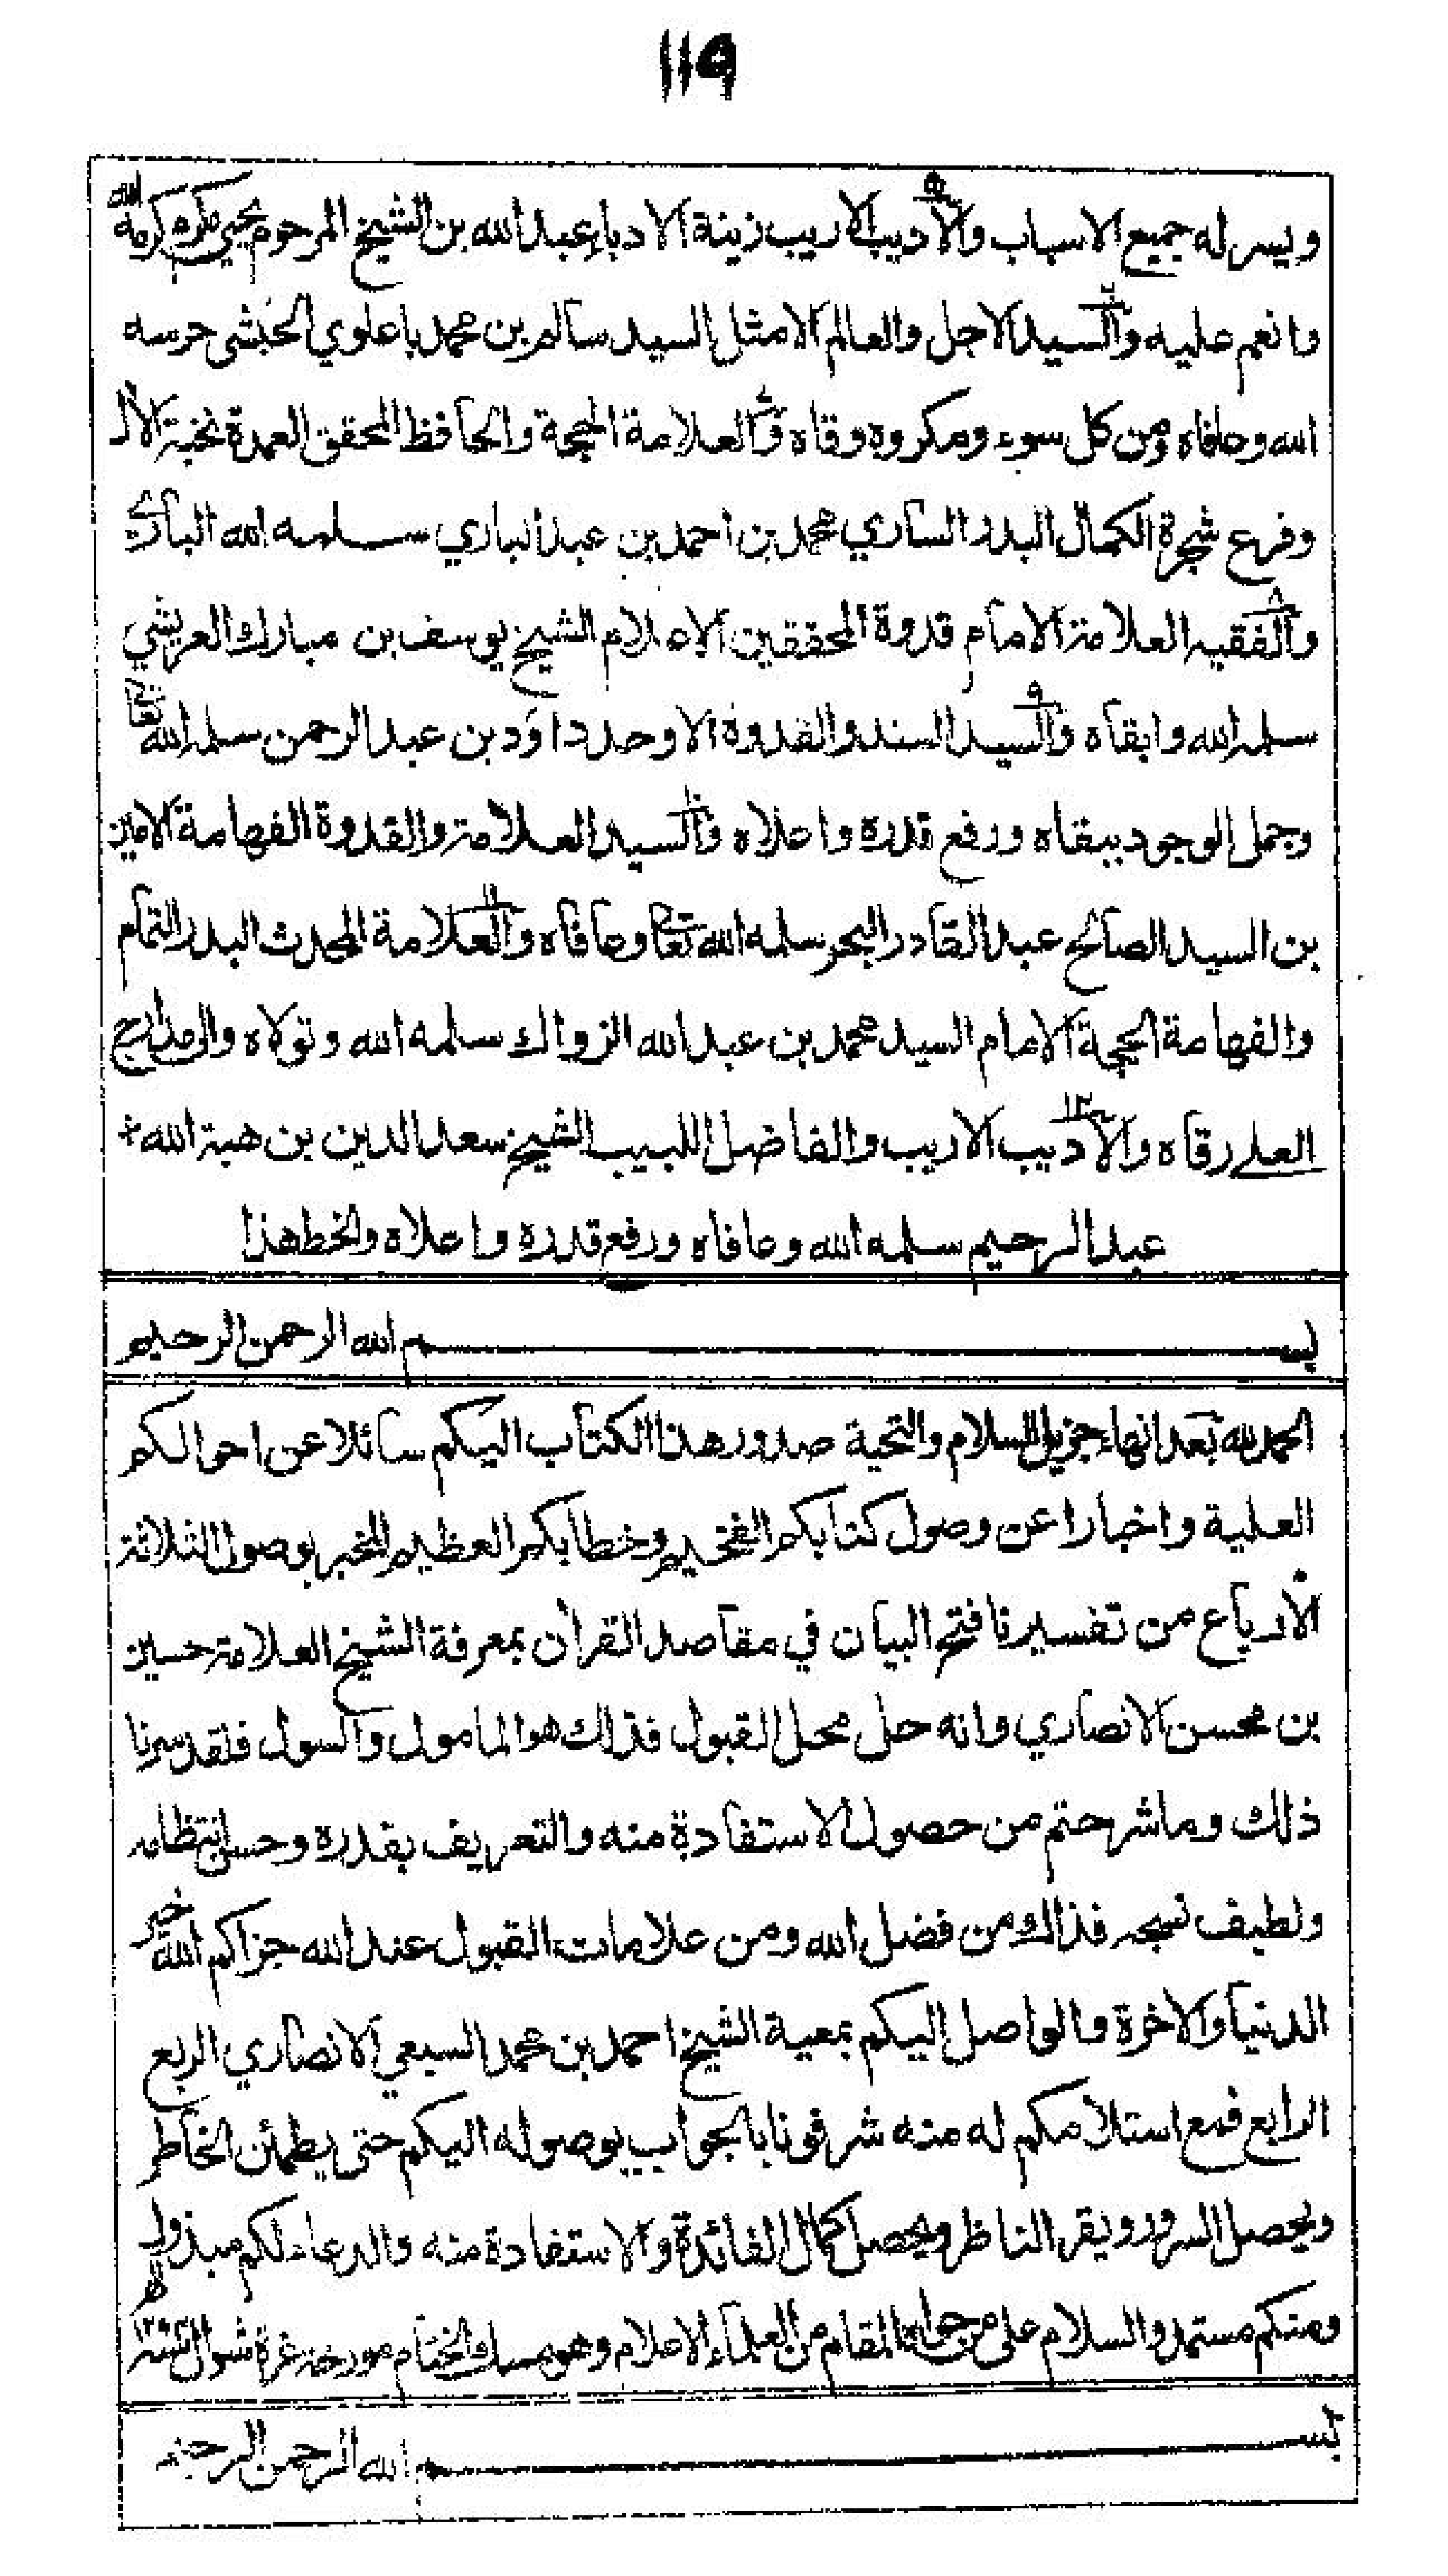 ١١٩
ويسر له جميع الاسباب والأديب الاريب زينة الادباء عبد الله بن الشيخ المرحوم يحيى مكرم كرمه الله
وانعم عليه والسيد الاجل والعالم الامثل السيد سالم بن محمد باعلوي الحبشي حرسه
الله وعافاه ومن كل سوء ومكروه وقاه والعلامة الحجة والحافظ المحقق العمدة نخبة الأل
وفرع شجرة الكمال البدر الساري محمد بن احمد بن عبد الباري سلمه الله الباري
والفقيه العلامة الامام قدوة المحققين الاعلام الشيخ يوسف بن مبارك العريشي
سلمه الله وابقاه والسيد السند والقدوة الاوحد داود بن عبد الرحمن سلمه الله تعالى
وجمل الوجود ببقاه ورفع قدره واعلاه والسيد العلامة والقدوة الفهامة الامين
بن السيد الصالح عبد القادر البحر سلمه الله تعا وعافاه والعلامة المحدث البدر التمام
والفهامة الحجة الامام السيد محمد بن عبد الله الزواك سلمه الله وتولاه والى مدارج
العلى رقاه والأديب الاريب والفاضل اللبيب الشيخ سعد الدين بن هبة الله
عبد الرحيم سلمه الله وعافاه ورفع قدره واعلاه والخط هذا
بسم الله الرحمن الرحيم
الحمد لله بعد انهاء جزيل السلام والتحية صدور هذا الكتاب اليكم سائلا عن احوالكم
العلية واخبارا عن وصول كتابكم الفخيم وخطابكم العظيم المخبر بوصول الثلاثة
الأرباع من تفسيرنا فتح البيان في مقاصد القرأن بمعرفة الشيخ العلامة حسين
بن محسن الانصاري وانه حل محل القبول فذلك هو المامول والسول فلقد سرنا
ذلك وما شرحتم من حصول الاستفادة منه والتعريف بقدره وحسن انتظامه
ولطيف نسجه فذلك من فضل الله ومن علامات القبول عند الله جزاكم الله خير
الدنيا والاخرة والواصل اليكم بمعية الشيخ احمد بن محمد السبعي الانصاري الربع
الرابع فمع استلامكم له منه شرفونا بالجواب بوصوله اليكم حتى يطمأن الخاطر
ويحصل السرور ويقر الناظر ويحصل كمال الفائدة والاستفادة منه والدعاء لكم مبذول
ومنكم مستمد والسلام على من حواه المقام من العلماء الاعلام وهو مسك الختام مورخه غرة شوال سنة
بسم الله الرحمن الرحيم